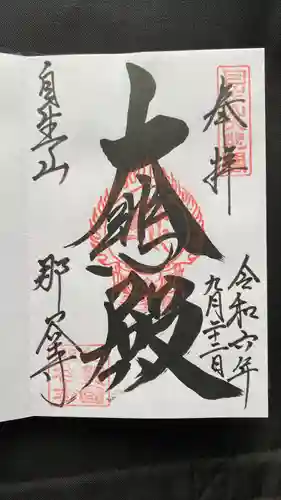 奉拝
令和六年
九月二十二日
大悲殿
自生山
那谷寺